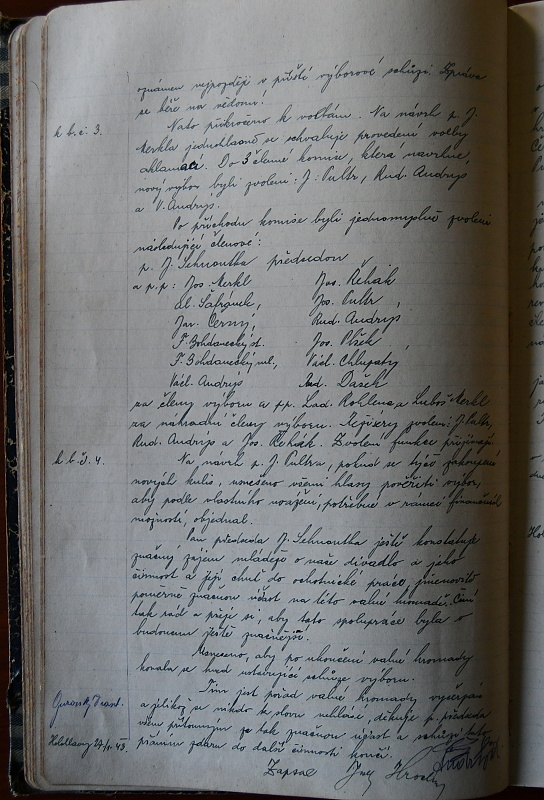 oznámen nejpozději v příští výborové schůzi. Zpráva
se béře na vědomí!
k b. č. 3. Nato přikročeno k volbám. Na návrh p. J.
Merkla jednohlasně se schvaluje provedení volby
aklamací. Do 3 členné komise, která navrhne
nový výbor byli zvoleni: J. Pultr, Rud. Andrys
a V. Andrys.
Po příchodu komise byli jednomyslně zvoleni
následující členové:
p. J. Schnautka předsedou
a p.p.: Jos. Merkl Jos. Řehák
Al. Šafránek, Jos. Pultr,
Jar. Černý, Rud. Andrys
F. Bohdanecký st. Jos. Plšek
F. Bohdanecký ml., Václ. Chlupatý
Václ. Andrys Ant. Dašek
za členy výboru a pp. Lad. Rohlena a Luboš Merkl
za náhradní členy výboru. Revisory zvoleni: J. Pultr,
Rud. Andrys a Jos. Řehák. Zvolení funkce přijímají.
k b. č. 4. Na návrh p. J. Pultra, pokud se týče zakoupení
nových kulis, usneseno všemi hlasy pověřiti výbor,
aby podle vlastního uvážení, potřebné v rámci finančních
možností, objednal.
Pan předseda J. Schnautka ještě konstatuje
značný zájem mládeže o naše divadlo a jeho
činnost a její chuť do ochotnické práce, jmenovitě
poměrně značnou účast na této valné hromadě. Činí
tak rád a přeje si, aby tato spolupráce byla v
budoucnu ještě značnější.
Usneseno, aby po ukončení valné hromady
konala se hned ustavující schůze výboru.
Tím jest pořad valné hromady vyčerpán
a jelikož se nikdo k slovu nehlásí, děkuje p. předseda
všem přítomným za tak značnou účast a schůzi tuto
přáním zdaru do další činnosti končí.
27/11. 43.
Zapsal